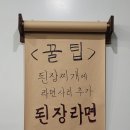 <꿀팁>
된장찌개에
라면사리 추가
된장라면